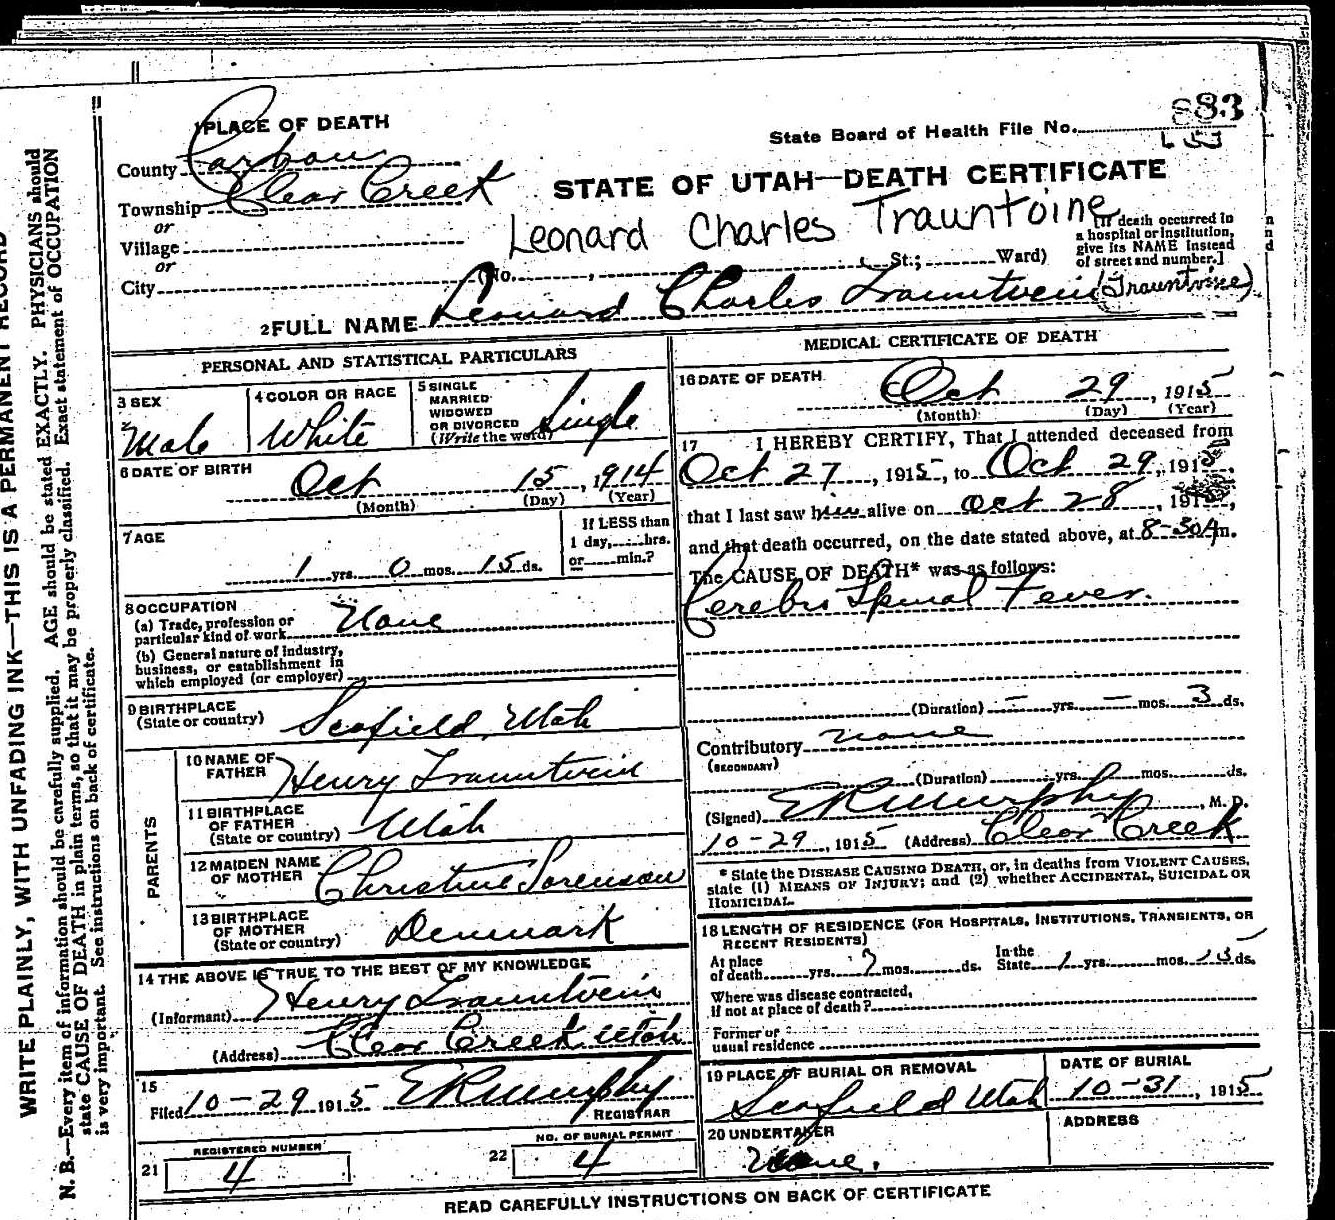 WRITE PLAINLY, WITH UNFADING INK—THIS IS A PERMANENT RECORD
N. B.—Every item of information should be carefully supplied. AGE should be stated EXACTLY. PHYSICIANS should
state CAUSE OF DEATH in plain terms, so that it may be properly classified. Exact statement of OCCUPATION
is very important. See instructions on back of certificate.
1 PLACE OF DEATH
883
State Board of Health File No.
County Carbon
STATE OF UTAH—DEATH CERTIFICATE
Township Clear Creek
or
Village
or
City
Leonard Charles Trauntoine
(No. , St.; Ward)
[If death occurred in
a hospital or institution,
give its NAME instead
of street and number.]
2 FULL NAME Leonard Charles Trauntvein (Trauntvine)
PERSONAL AND STATISTICAL PARTICULARS
3 SEX
Male
4 COLOR OR RACE
White
5 SINGLE
MARRIED
WIDOWED
OR DIVORCED
(Write the word)
Single
6 DATE OF BIRTH
Oct 15, 1914
(Month) (Day) (Year)
7 AGE
1 yrs. 0 mos. 15 ds.
If LESS than
1 day, hrs.
or min.?
8 OCCUPATION
(a) Trade, profession or
particular kind of work None
(b) General nature of industry,
business, or establishment in
which employed (or employer)
9 BIRTHPLACE
(State or country) Scofield, Utah
PARENTS
10 NAME OF
FATHER Henry Trauntvein
11 BIRTHPLACE
OF FATHER
(State or country) Utah
12 MAIDEN NAME
OF MOTHER Christine Sorenson
13 BIRTHPLACE
OF MOTHER
(State or country) Denmark
14 THE ABOVE IS TRUE TO THE BEST OF MY KNOWLEDGE
(Informant) Henry Trauntvein
(Address) Clear Creek Utah
15
Filed 10-29 1915 ER Murphy
REGISTRAR
21 REGISTERED NUMBER
4
22 NO. OF BURIAL PERMIT
4
MEDICAL CERTIFICATE OF DEATH
16 DATE OF DEATH
Oct 29, 1915
(Month) (Day) (Year)
17 I HEREBY CERTIFY, That I attended deceased from
Oct 27, 1915, to Oct 29, 1915,
that I last saw him alive on Oct 28, 1915,
and that death occurred, on the date stated above, at 8-30 A m.
The CAUSE OF DEATH* was as follows:
Cerebro Spinal Fever.
(Duration) — yrs. — mos. 3 ds.
Contributory none
(SECONDARY)
(Duration) yrs. mos. ds.
(Signed) ER Murphy, M. D.
10-29, 1915 (Address) Clear Creek
* State the DISEASE CAUSING DEATH, or, in deaths from VIOLENT CAUSES,
state (1) MEANS OF INJURY; and (2) whether ACCIDENTAL, SUICIDAL OR
HOMICIDAL.
18 LENGTH OF RESIDENCE (FOR HOSPITALS, INSTITUTIONS, TRANSIENTS, OR
RECENT RESIDENTS)
At place
of death yrs. 7 mos. ds.
In the
State 1 yrs. mos. 15 ds.
Where was disease contracted,
if not at place of death?
Former or
usual residence
19 PLACE OF BURIAL OR REMOVAL
Scofield Utah
DATE OF BURIAL
10-31, 1915
20 UNDERTAKER
None.
ADDRESS
READ CAREFULLY INSTRUCTIONS ON BACK OF CERTIFICATE